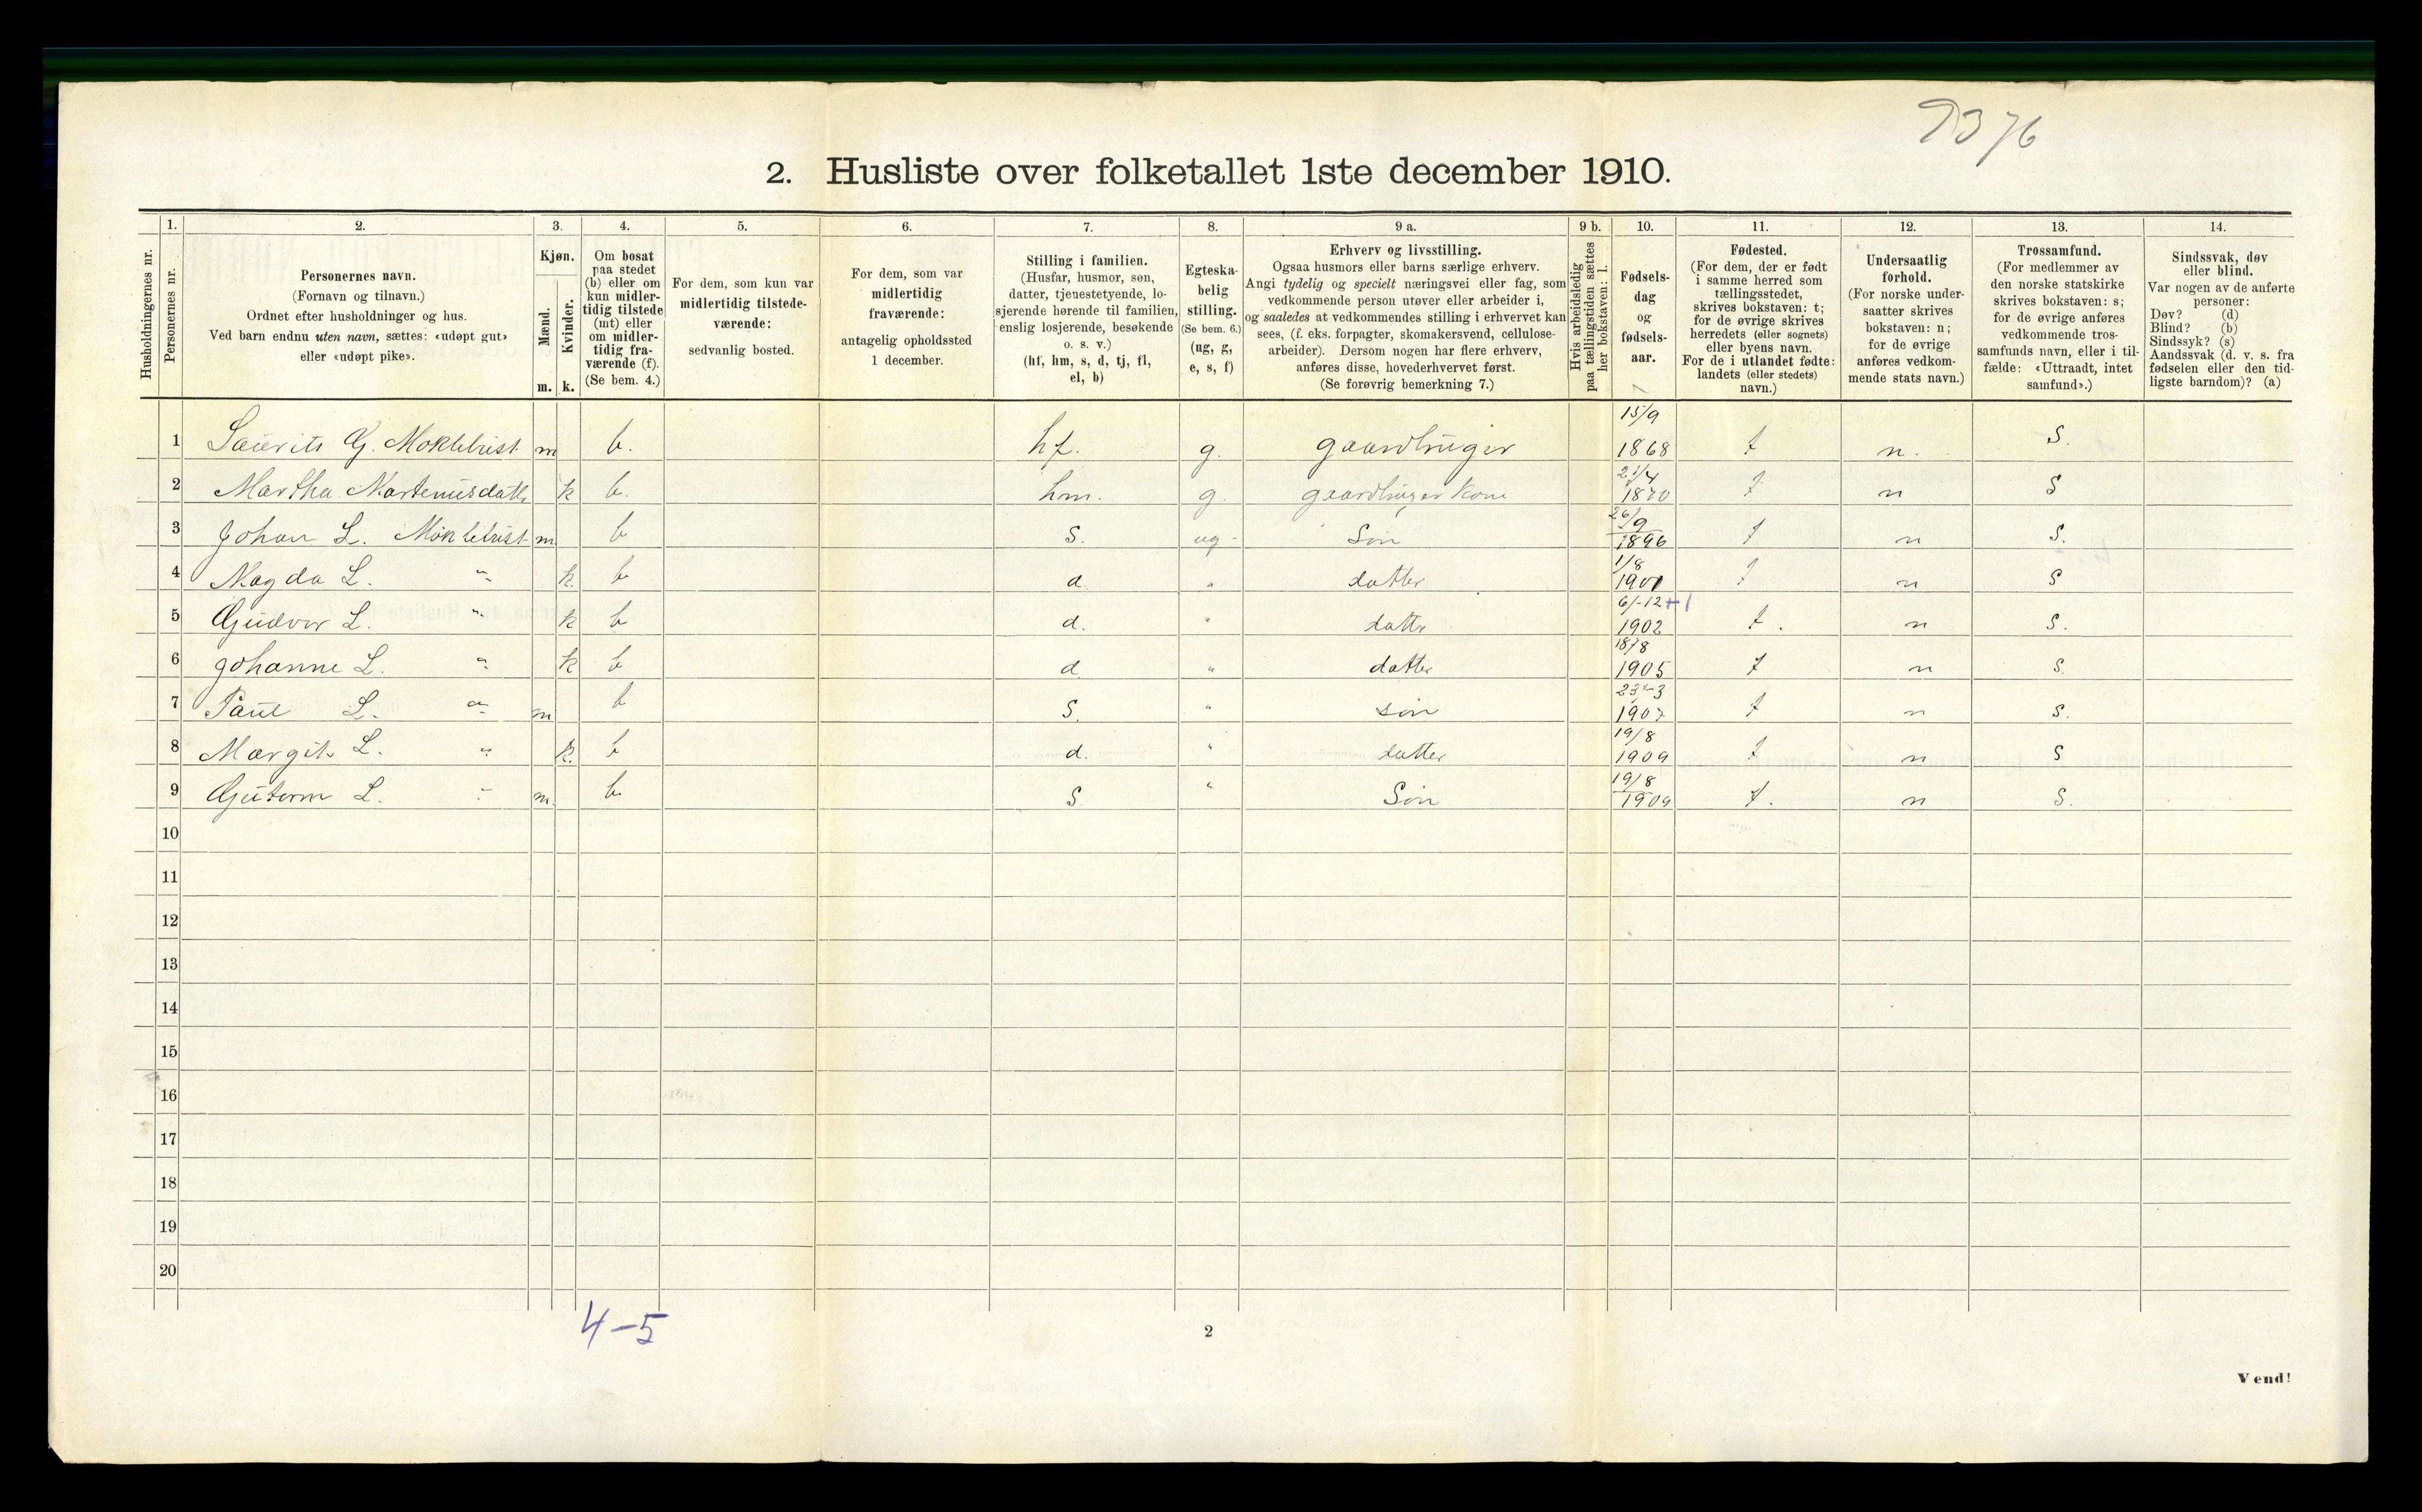 7376
2. Husliste over folketallet 1ste december 1910.
Husholdningernes nr.
1.
Personernes nr.
2.
Personernes navn.
(Fornavn og tilnavn.)
Ordnet efter husholdninger og hus.
Ved barn endnu uten navn, sættes: «udøpt gut»
eller «udøpt pike».
3.
Kjøn.
Mænd.
Kvinder.
m. k.
4.
Om bosat
paa stedet
(b) eller om
kun midler-
tidig tilstede
(mt) eller
om midler-
tidig fra-
værende (f).
(Se bem. 4.)
5.
For dem, som kun var
midlertidig tilstede-
værende:
sedvanlig bosted.
6.
For dem, som var
midlertidig
fraværende:
antagelig opholdssted
1 december.
7.
Stilling i familien.
(Husfar, husmor, søn,
datter, tjenestetyende, lo-
sjerende hørende til familien,
enslig losjerende, besøkende
o. s. v.)
(hf, hm, s, d, tj, fl,
el, b)
8.
Egteska-
belig
stilling.
(Se bem. 6.)
(ug, g,
e, s, f)
9 a.
Erhverv og livsstilling.
Ogsaa husmors eller barns særlige erhverv.
Angi tydelig og specielt næringsvei eller fag, som
vedkommende person utøver eller arbeider i,
og saaledes at vedkommendes stilling i erhvervet kan
sees, (f. eks. forpagter, skomakersvend, cellulose-
arbeider). Dersom nogen har flere erhverv,
anføres disse, hovederhvervet først.
(Se forøvrig bemerkning 7.)
9 b.
Hvis arbeidsledig
paa tællingstiden sættes
her bokstaven: l.
10.
Fødsels-
dag
og
fødsels-
aar.
11.
Fødested.
(For dem, der er født
i samme herred som
tællingsstedet,
skrives bokstaven: t;
for de øvrige skrives
herredets (eller sognets)
eller byens navn.
For de i utlandet fødte:
landets (eller stedets)
navn.)
12.
Undersaatlig
forhold.
(For norske under-
saatter skrives
bokstaven: n;
for de øvrige
anføres vedkom-
mende stats navn.)
13.
Trossamfund.
(For medlemmer av
den norske statskirke
skrives bokstaven: s;
for de øvrige anføres
vedkommende tros-
samfunds navn, eller i til-
fælde: «Uttraadt, intet
samfund».)
14.
Sindssvak, døv
eller blind.
Var nogen av de anførte
personer:
Døv? (d)
Blind? (b)
Sindssyk? (s)
Aandssvak (d. v. s. fra
fødselen eller den tid-
ligste barndom)? (a)
1 Laurits G. Moklebust m b. hf. g. gaardbruger 15/9 1868 t n. S.
2 Martha Martenusdatt k b. hm. g. gaardbruger kone 21/4 1870 t n S
3 Johan L. Moklebust m b S. ug - Søn 26/9 1896 t n S.
4 Magda L. " k. b d. " datter 1/8 1901 t n S
5 Gudvor L. " k b d. " datter 6/-12 +1 1902 t. n S.
6 Johanne L. " k b d " datter 18/8 1905 t n S.
7 Paul L. " m b S. " søn 23-3 1907 t n S.
8 Margit L. " k. b d. " datter 19/8 1909 t n S
9 Gutorm L. " m. b. S " Søn 19/8 1909 t. n S.
10
11
12
13
14
15
16
17
18
19
20
4-5
2
Vend!